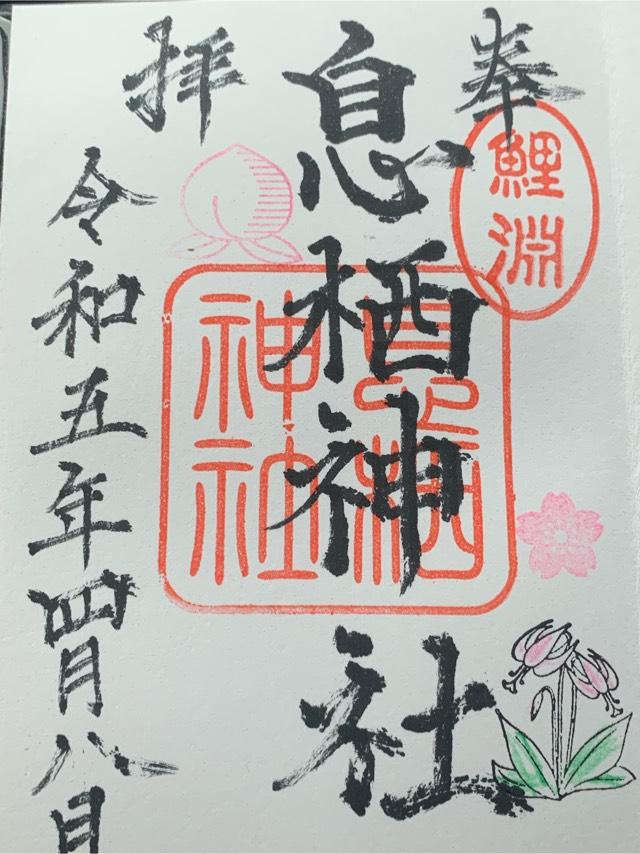 奉
鯉淵
息栖神社
息栖
神社
拝
令和五年四月八日